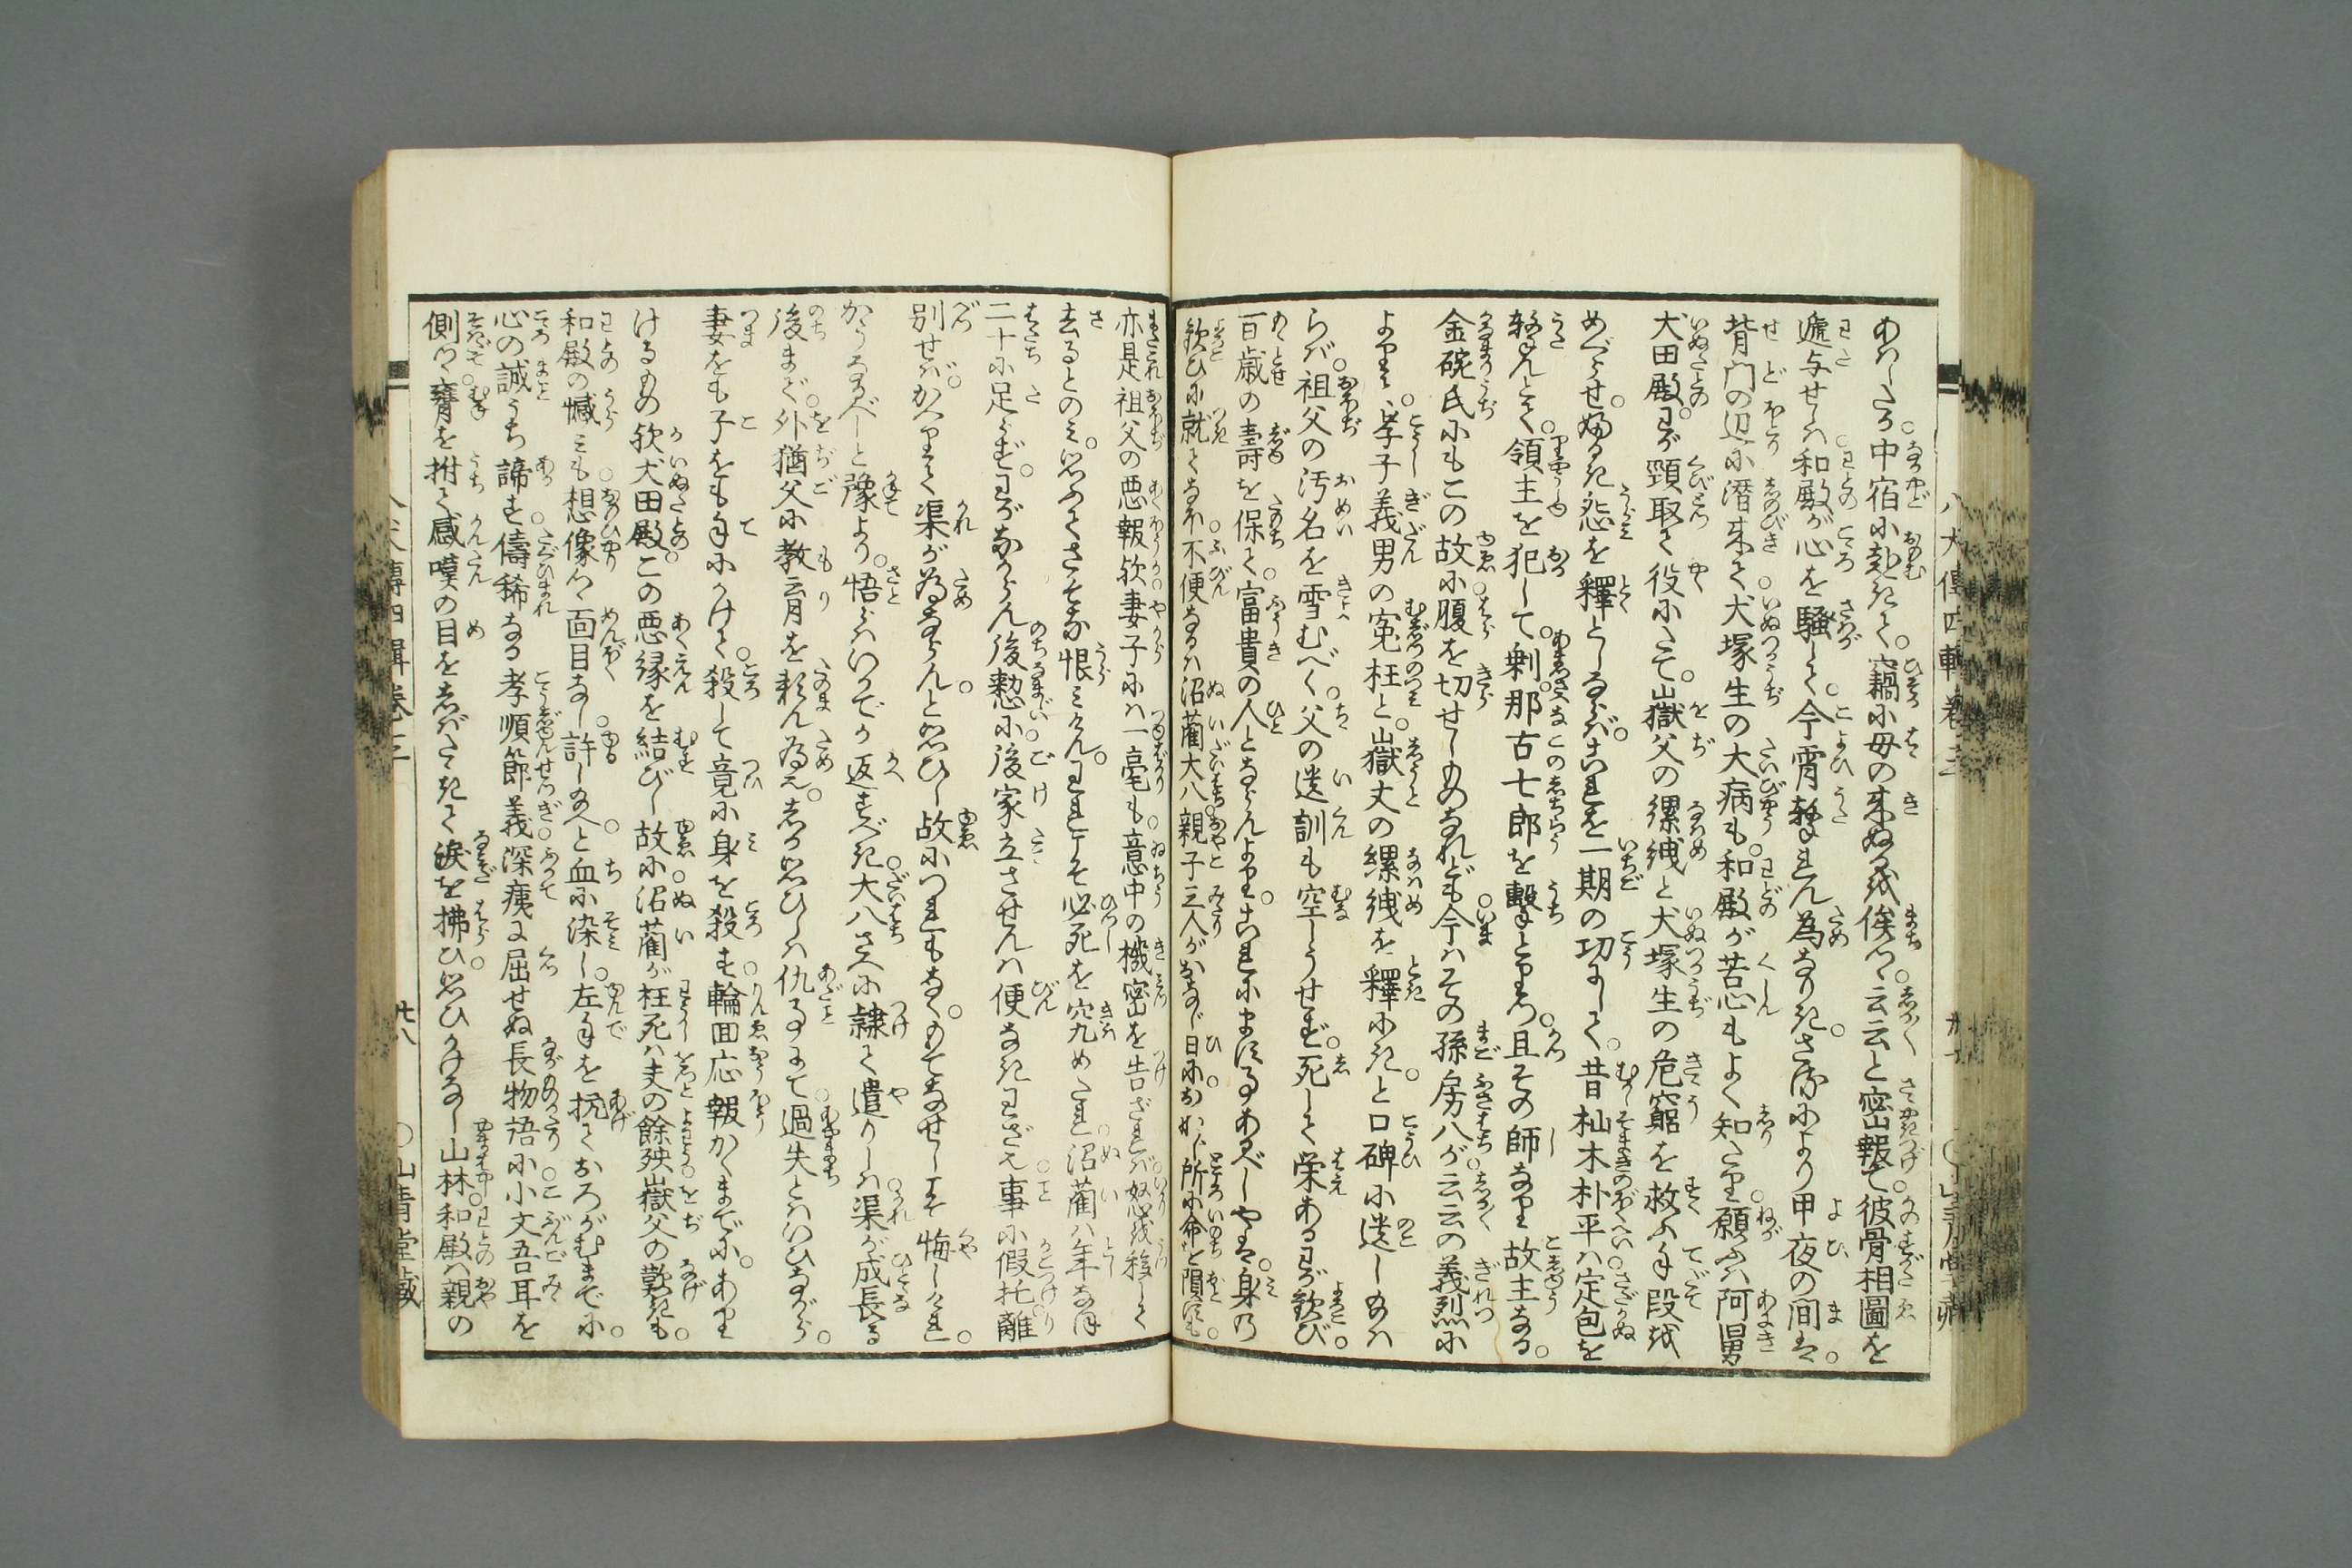 あへしたる。中宿に赴きて。竊に母の来ぬるを俟つゝ。云云と密報て。彼骨相圖を
遞与せしは和殿が心を騒して。今宵撃れん為なりき。さるにより甲夜の間は。
背門の辺に潜来て。犬塚生の大病も。和殿が苦心もよく知たり。願ふは阿舅
犬田殿。わが頸取て役にたて。嶽父の縲絏と犬塚生の危窮を救ふ手段を
めぐらせ。婦る𛂦怨を釋としならば。これを一期の功にして。昔杣木朴平は定包を
撃んとて。領主を犯して。剰那古七郎を撃とりつ。且その師なり故主なる。
金碗氏にもこの故に腹を切せしものなれども。今はその孫房八が云云の義烈に
よりて。孝子義男の寃枉と。嶽丈の縲絏を釋にきと口碑に遺しもせば
らば。祖父の汚名を雪むべく。父の遺訓も空しうせず。死して栄あるわが歓び。
百歳の壽を保て。富貴の人とならんより。これにますことあるべしやは。身の
歓びに就てなほ。不便なるは沼藺大八。親子三人がおなじ日に。おなじ所に命を隕すも。
亦是祖父の悪報歟。妻子には一毫も。意中の機密を告ざれば。怒を移して
去るとのみ。思ふてさぞな恨みけん。われこそ必死を究めたれ。沼藺は年なほ
二十に足らず。わがなからん後㔟に。後家立させんは便なきわざ也。事に假托離
別せば。かへりて渠が為ならんと思ひし故につれもなく。もてなせしこそ悔しけれ。
かうなるべしと豫より。悟らばいかでか返すべき。大八さへに隷て遣りしは渠が成長る
後まで。外猶父に教育を頼ん為也。しか思ひしは仇ことにて。過失とはいひながら。
妻をも子をも手にかけて。殺して竟に身を殺す。輪回応報かくまでに。あり
けるもの歟犬田殿。この悪縁を結びし故に。沼藺が枉死は夫の餘殃。嶽父の歎きも。
和殿の憾みも。想像つゝ面目なし。許し給へと血に染し。左手を抗ておろがむまでに。
心の誠うち諦す。儔稀なる孝順節義。深痍に屈せぬ長物語に。小文吾耳を
側つゝ。胷を拊て感嘆の目をしばたゝきて涙を拂ひ。思ひかけなし山林。和殿は親の
八犬傳四輯巻之三
廿八
○山青堂藏